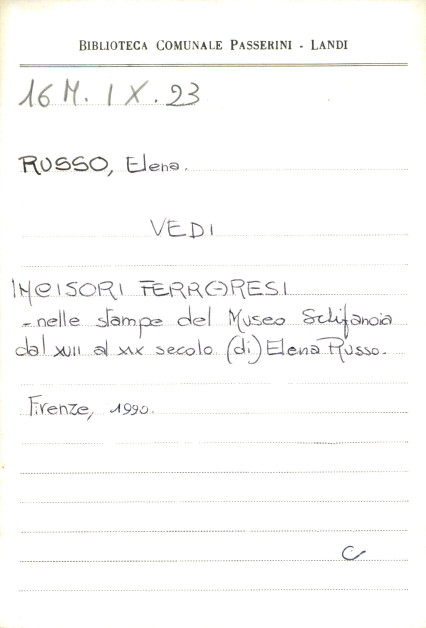 BIBLIOTECA COMUNALE PASSERINI - LANDI
16 M. IX. 23
RUSSO, Elena.
VEDI
INCISORI FERRARESI
- nelle stampe del Museo Schifanoia
dal XVII al XIX secolo (di) Elena Russo.
Firenze, 1990.
C